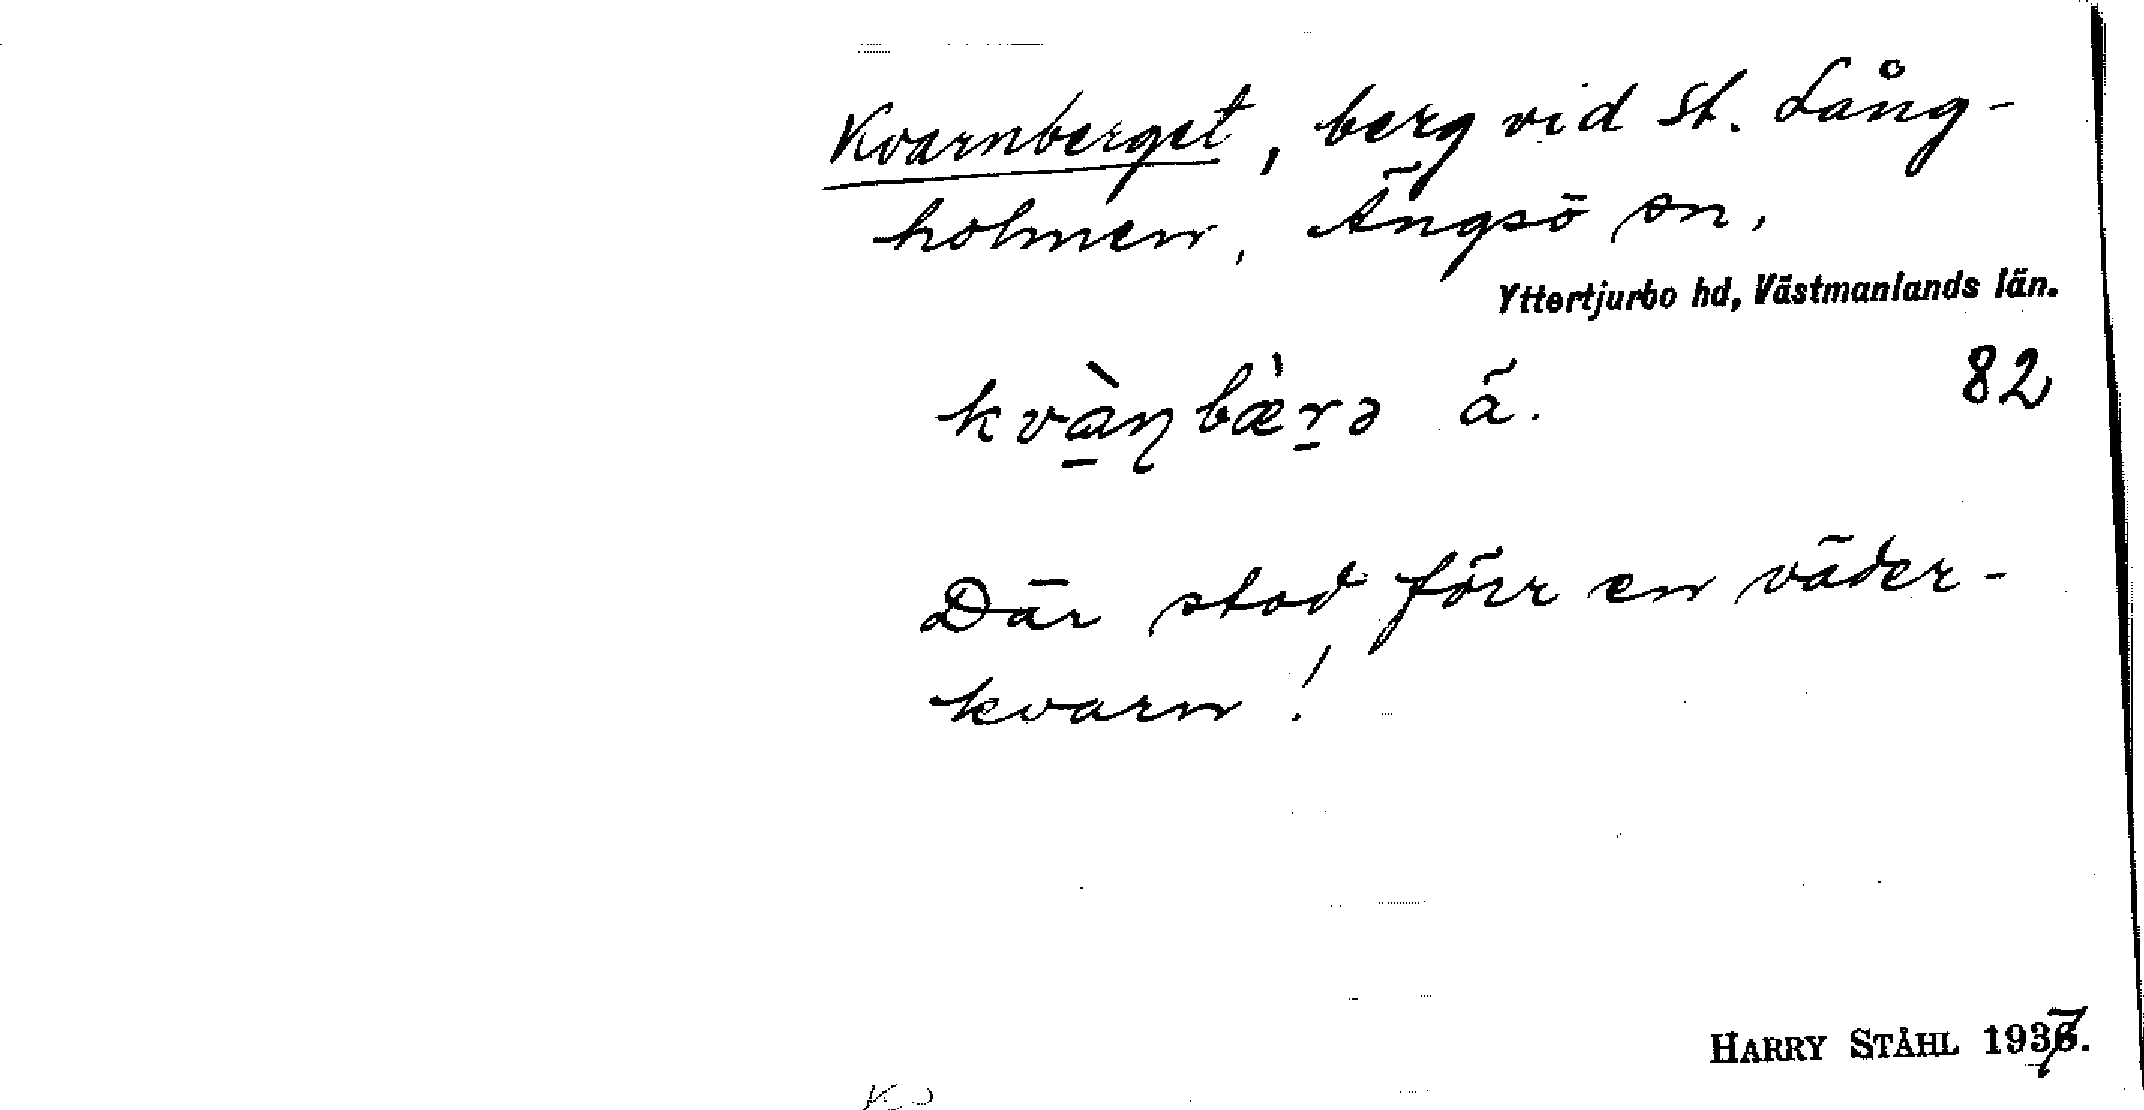 Kvarnberget, berg vid St. Lång-
holmen, Ängsö sn.
Yttertjurbo hd, Västmanlands län.
kvà̱ɳbæ̀ṟə ä.
82
Där stod förr en väder-
kvarn!
HARRY STÅHL 1937.